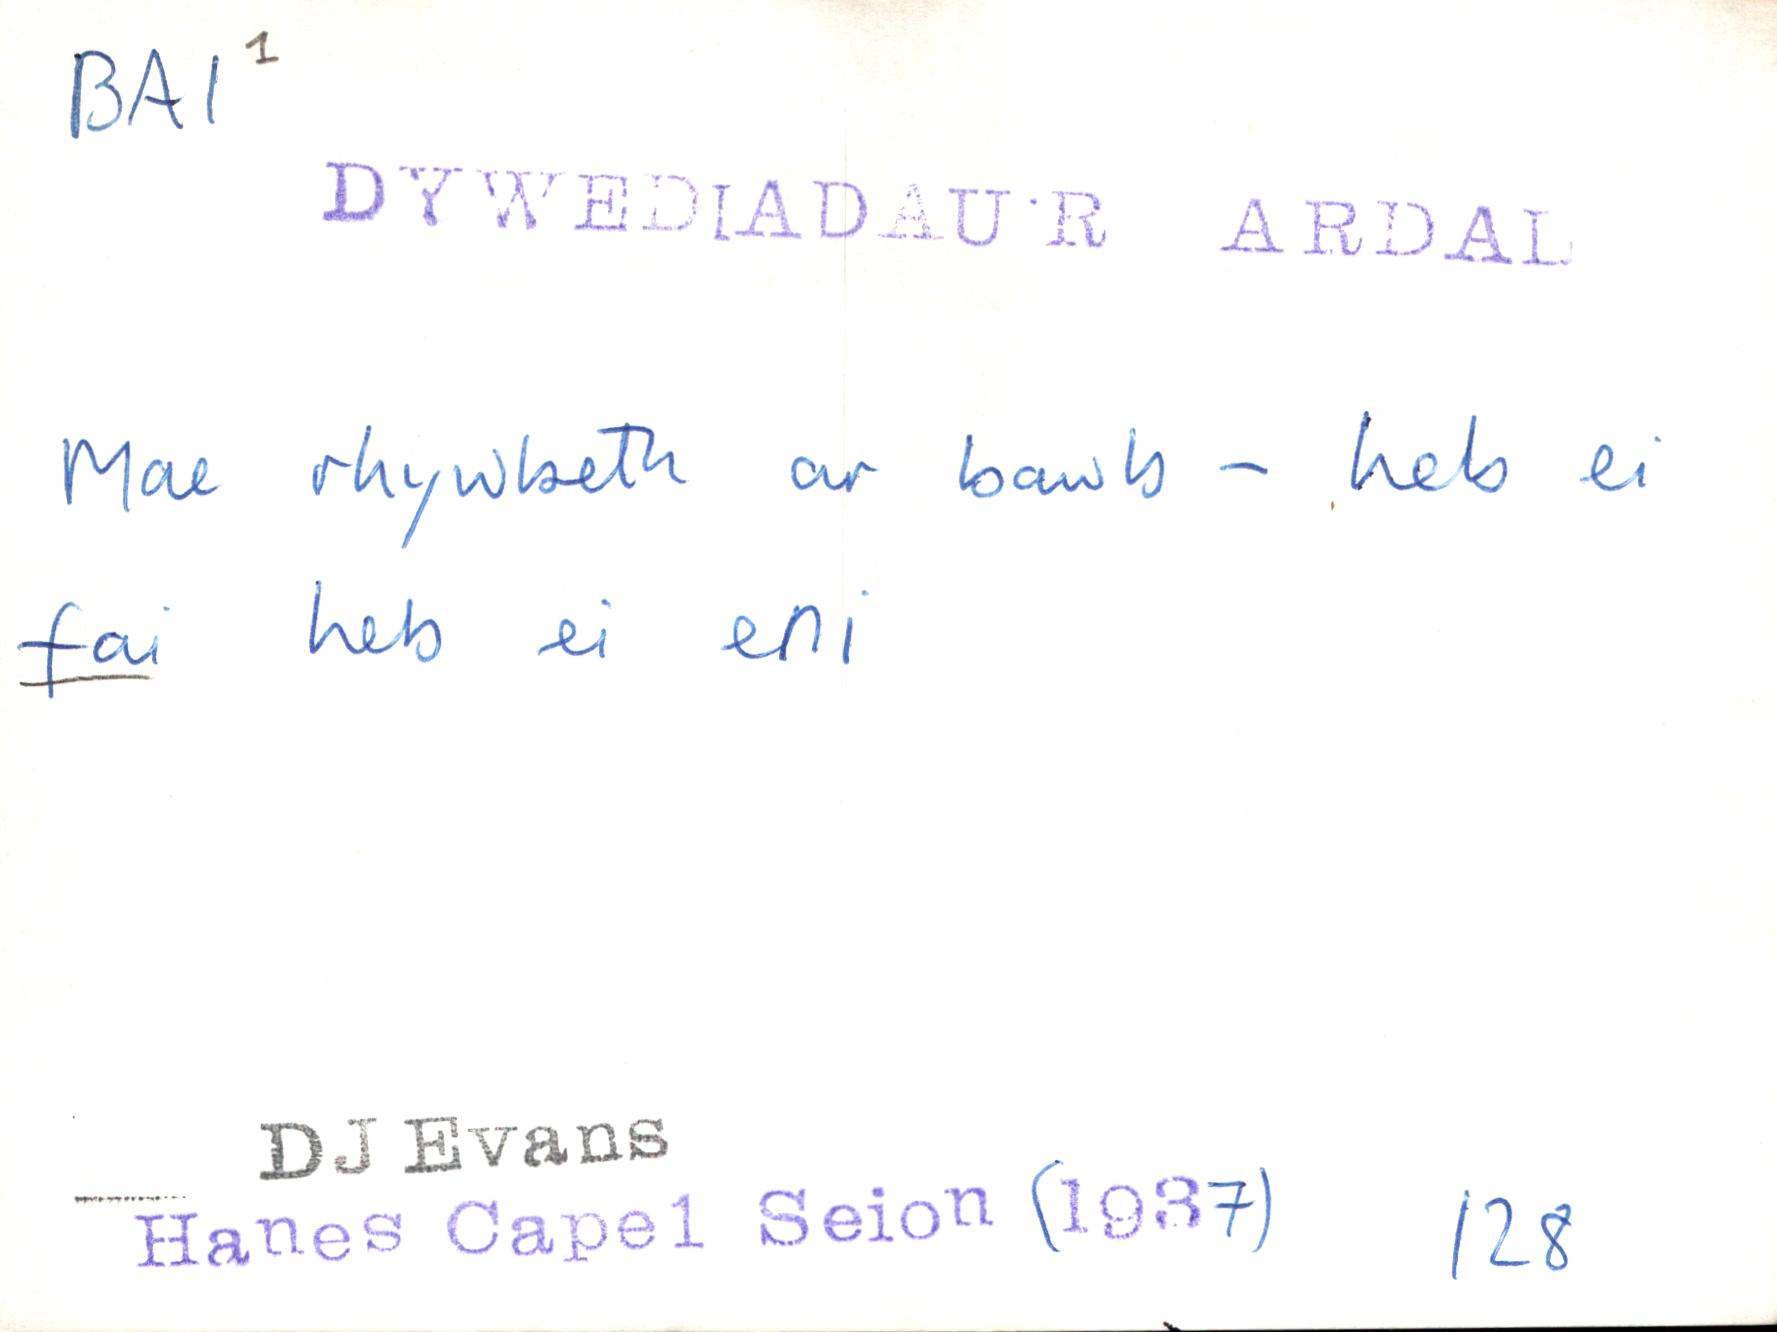 BAI¹
DYWEDIADAU'R ARDAL
Mae rhywbeth ar bawb – heb ei
fai heb ei eni
DJ Evans
Hanes Capel Seion (1937) 128